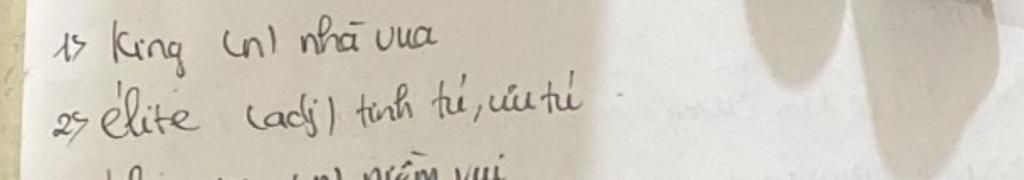 1> King (n) nhà vua
2> élite (adj) tinh tú, ưu tú
(n) niềm vui